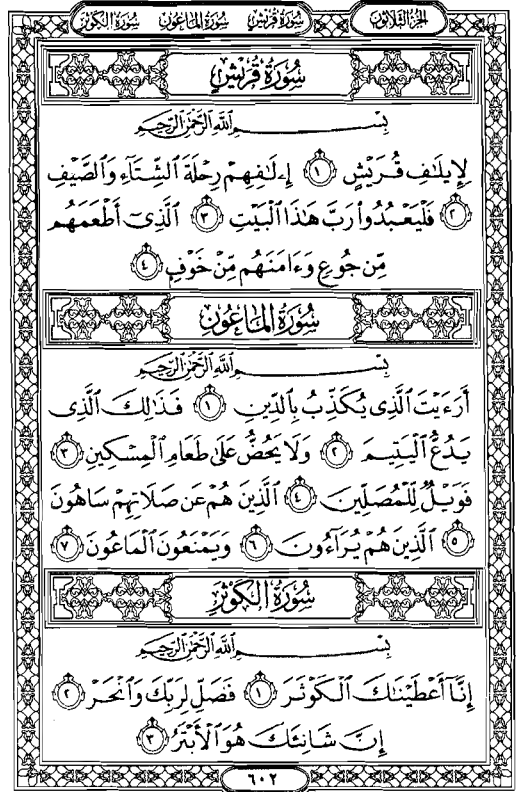 الجزء الثلاثون
سورة قريش سورة الماعون سورة الكوثر
سُورَةُ قُرَيْشٍ
بِسْمِ اللَّهِ الرَّحْمَٰنِ الرَّحِيمِ
لِإِيلَٰفِ قُرَيْشٍ ١ إِۦلَٰفِهِمْ رِحْلَةَ ٱلشِّتَآءِ وَٱلصَّيْفِ
٢ فَلْيَعْبُدُوا۟ رَبَّ هَٰذَا ٱلْبَيْتِ ٣ ٱلَّذِىٓ أَطْعَمَهُم
مِّن جُوعٍ وَءَامَنَهُم مِّنْ خَوْفٍۭ ٤
سُورَةُ الْمَاعُونِ
بِسْمِ اللَّهِ الرَّحْمَٰنِ الرَّحِيمِ
أَرَءَيْتَ ٱلَّذِى يُكَذِّبُ بِٱلدِّينِ ١ فَذَٰلِكَ ٱلَّذِى
يَدُعُّ ٱلْيَتِيمَ ٢ وَلَا يَحُضُّ عَلَىٰ طَعَامِ ٱلْمِسْكِينِ ٣
فَوَيْلٌ لِّلْمُصَلِّينَ ٤ ٱلَّذِينَ هُمْ عَن صَلَاتِهِمْ سَاهُونَ
٥ ٱلَّذِينَ هُمْ يُرَآءُونَ ٦ وَيَمْنَعُونَ ٱلْمَاعُونَ ٧
سُورَةُ الْكَوْثَرِ
بِسْمِ اللَّهِ الرَّحْمَٰنِ الرَّحِيمِ
إِنَّآ أَعْطَيْنَٰكَ ٱلْكَوْثَرَ ١ فَصَلِّ لِرَبِّكَ وَٱنْحَرْ ٢
إِنَّ شَانِئَكَ هُوَ ٱلْأَبْتَرُ ٣
٦٠٢